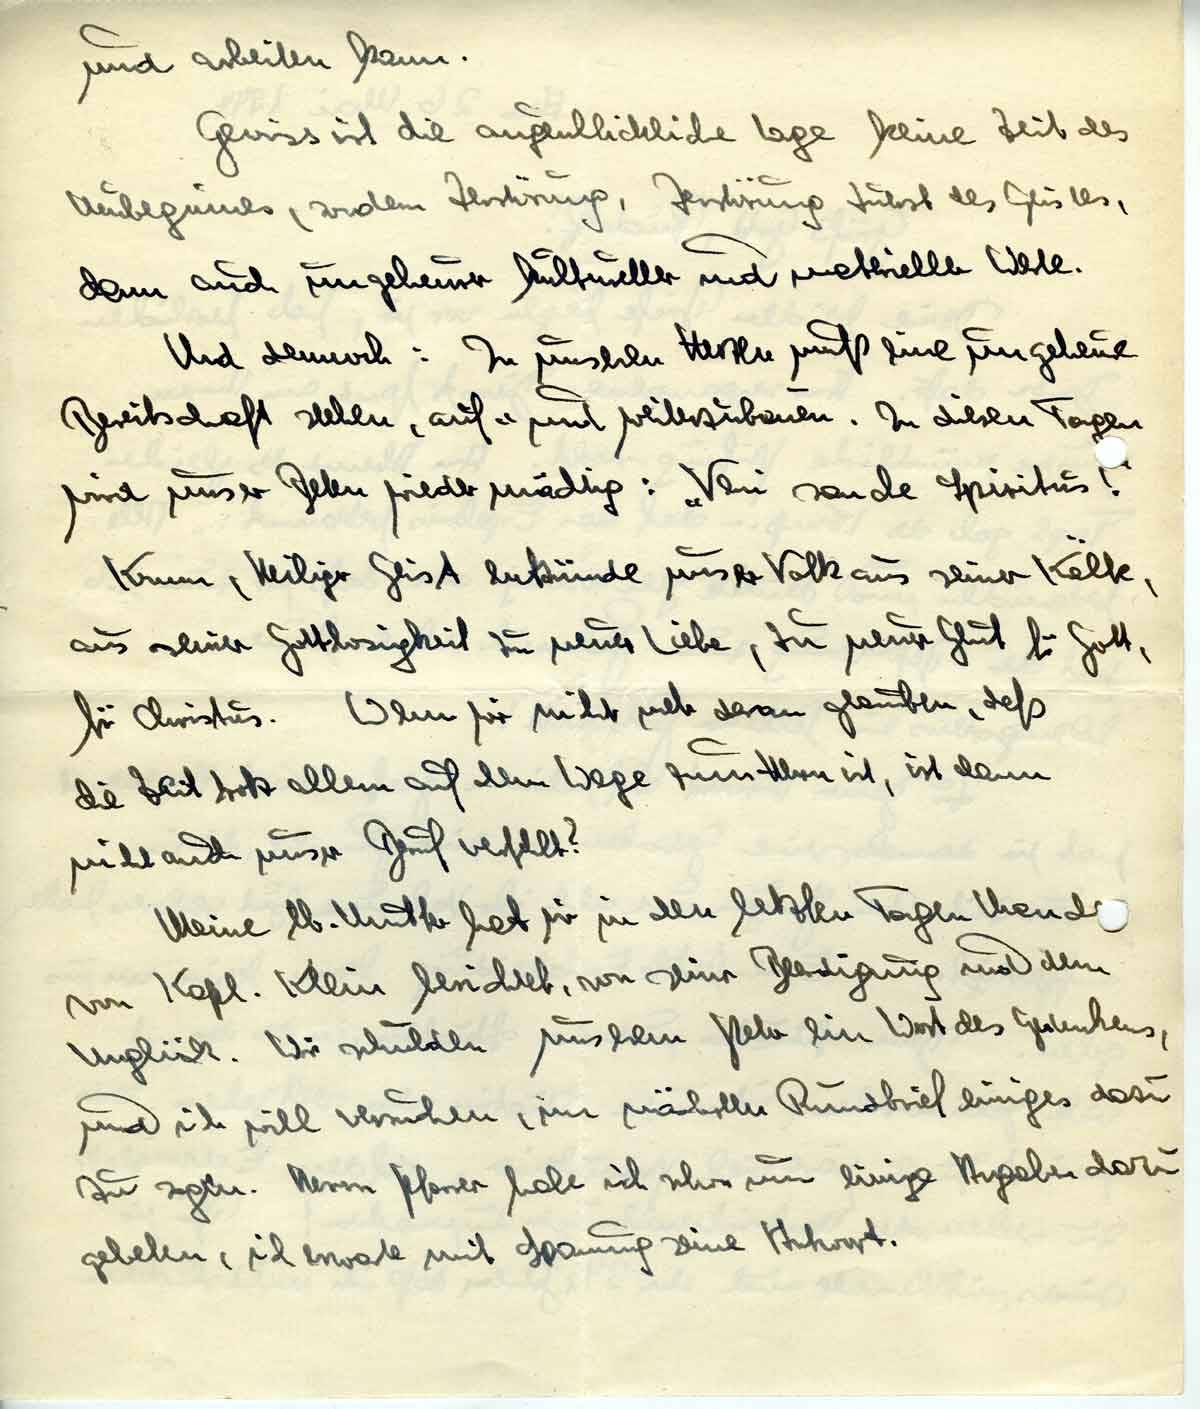 und arbeiten kann.
Gewiss ist die augenblickliche Lage keine Zeit des
Neubeginnes, sondern Zerstörung, Zerstörung zuerst des Geistes,
dann auch ungeheurer kultureller und materieller Werte.
Und dennoch: In unseren Herzen muß eine ungeheure
Bereitschaft stehen, auf- und weiterzubauen. In diesen Tagen
wird unser Beten wieder mächtig: „Veni sancte Spiritus!"
Komm, Heiliger Geist entzünde unser Volk aus seiner Kälte,
aus seiner Gottlosigkeit zu neuer Liebe, zu neuer Glut für Gott,
für Christus. Wenn wir nicht mehr daran glauben, daß
die Zeit trotz allem auf dem Wege zum Herrn ist, ist dann
nicht auch unser Beruf verfehlt?
Meine lb. Mutter hat mir in den letzten Tagen
von Kapl. Klein berichtet, von seiner Beerdigung und dem
Unglück. Wir schulden unserem ein Wort des Gedenkens,
und ich will versuchen, im nächsten Rundbrief einiges dazu
zu sagen. Herrn Pfarrer habe ich schon um einige Angaben dazu
gebeten, ich erwarte mit Spannung seine Antwort.